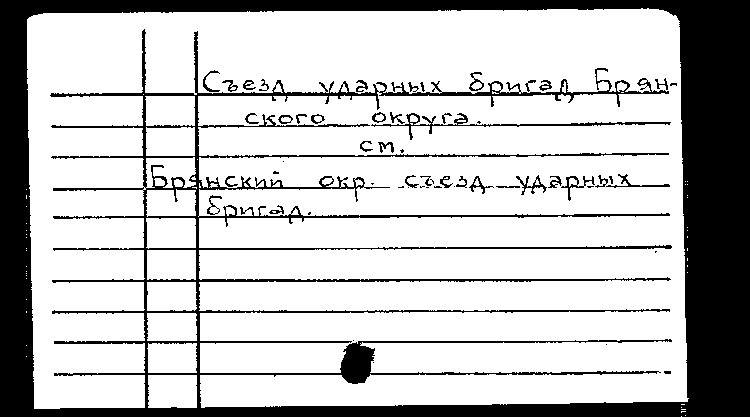 Съезд ударных бригад Брян-
ского округа.
см.
Брянский окр. съезд ударных
бригад.